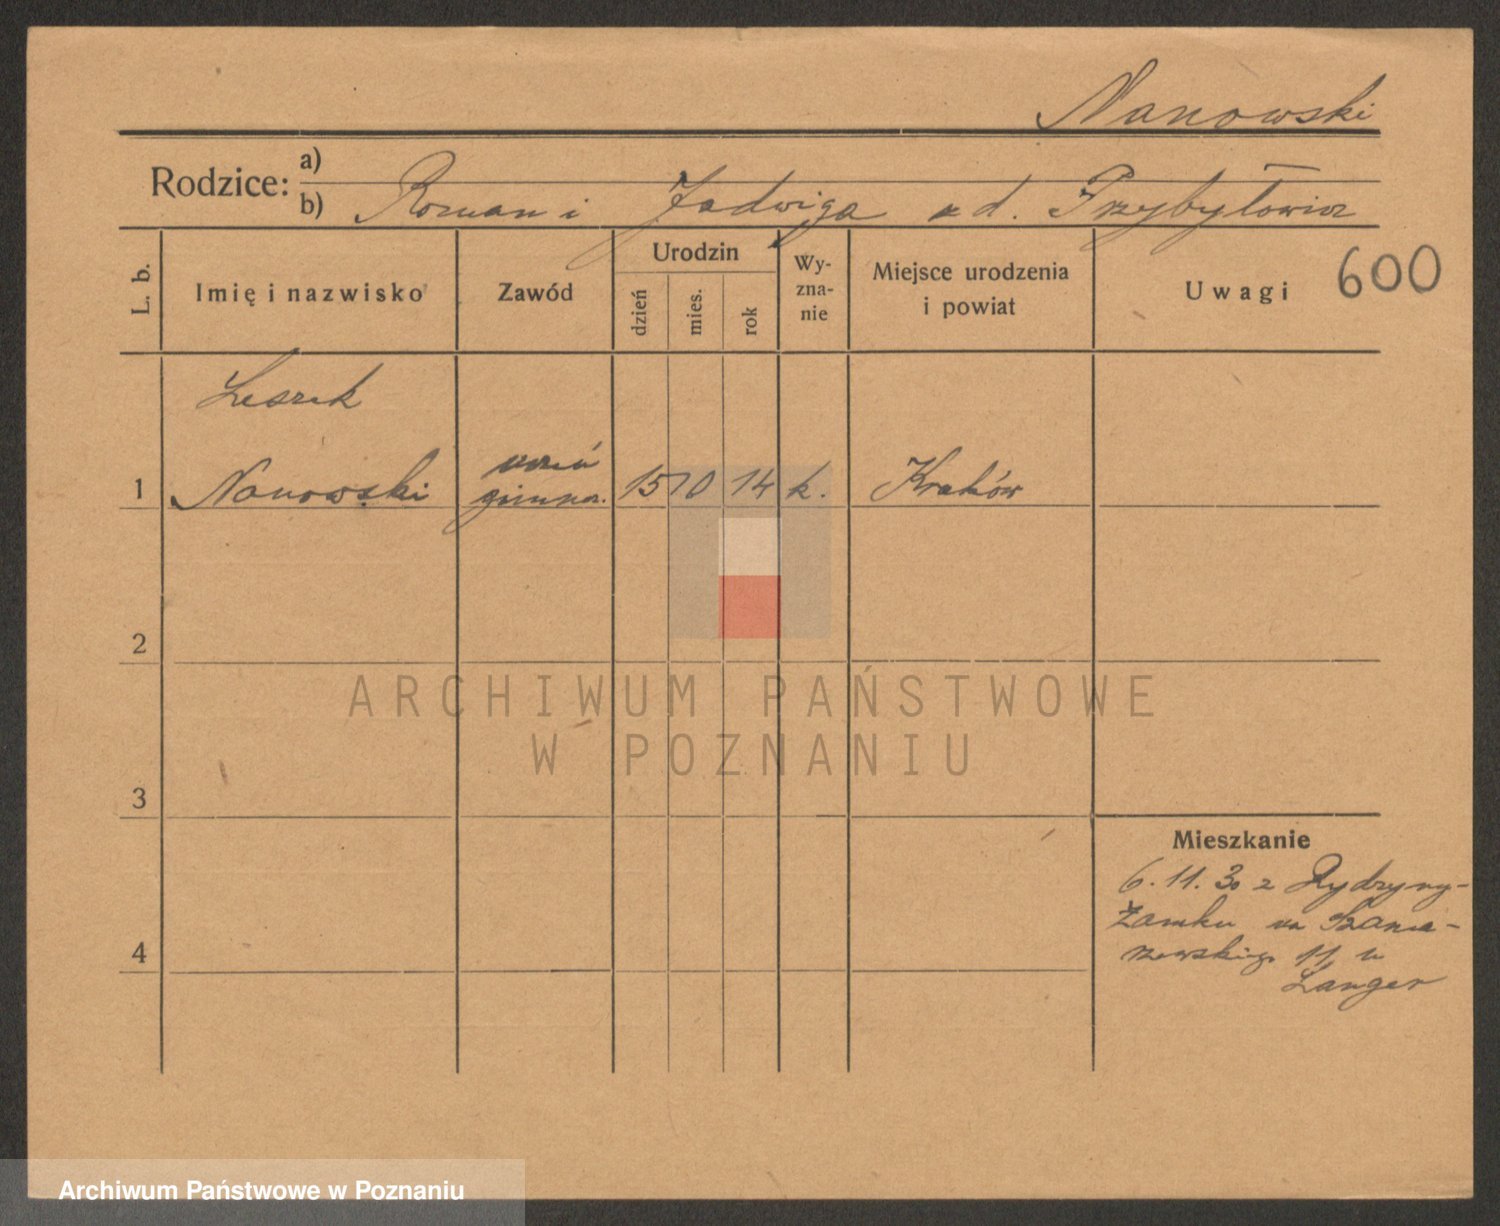 Nanowski
Rodzice:
a)
b) Roman i Jadwiga z d. Przybyłowicz
L. b.
Imię i nazwisko
Zawód
Urodzin
dzień
mies.
rok
Wy-
zna-
nie
Miejsce urodzenia
i powiat
Uwagi
600
Leszek
uczeń
1 Nanowski gimnaz. 15 10 14 k. Kraków
2
3
4
Mieszkanie
6.11.30 z Rydzyny-
Zamku na
11 u
Langer
ARCHIWUM PAŃSTWOWE
W POZNANIU
Archiwum Państwowe w Poznaniu